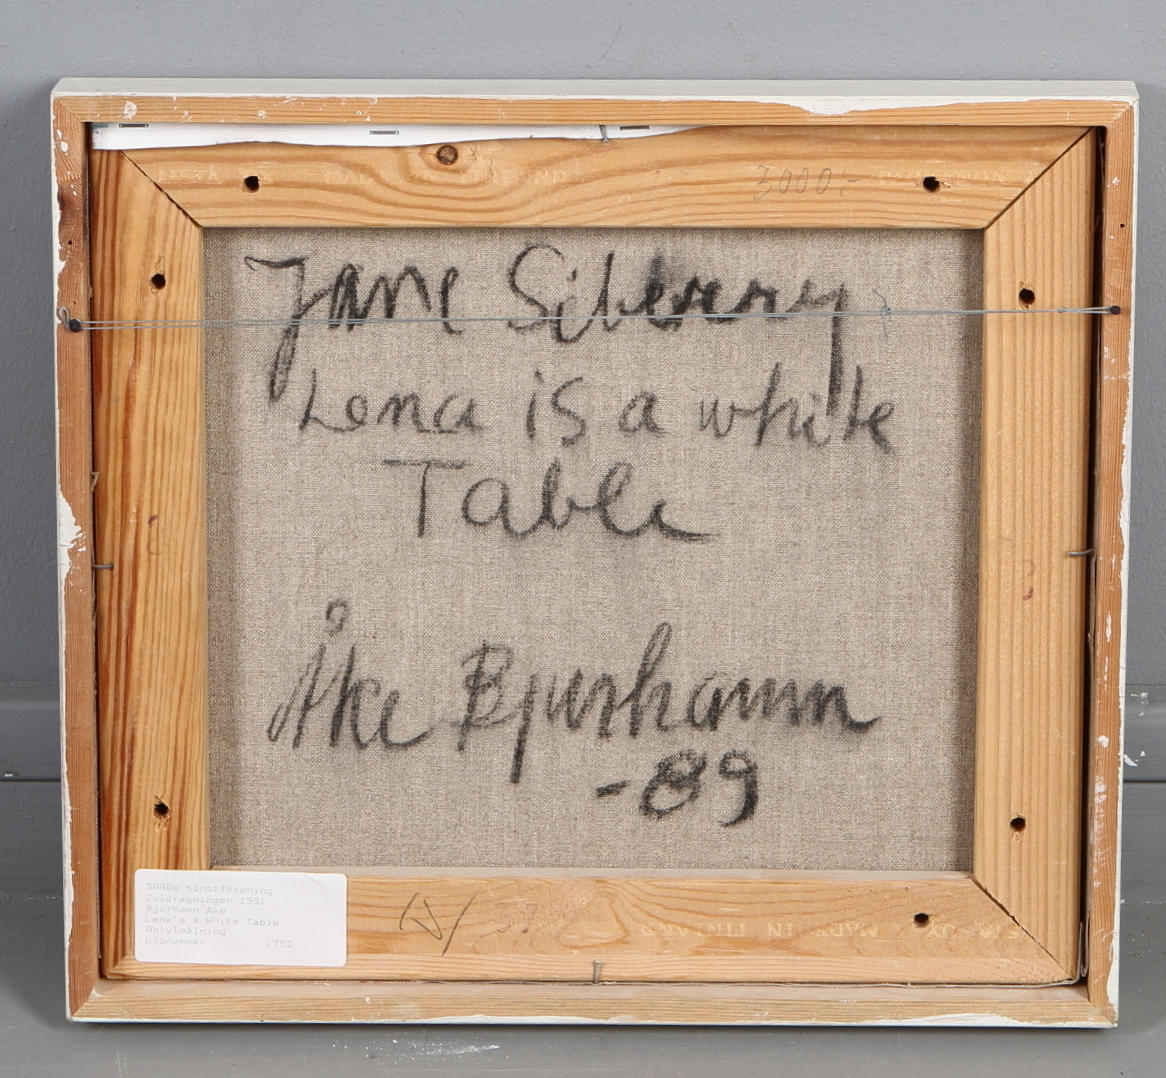 MADE IN FINLAND
3000:-
Jane Siberry
Lena is a white
Table
Åke Bjurhamn
-89
SAABs Konstförening
Juldragningen 1991
Bjurhamn Åke
Lena's a White Table
Akrylmålning
Löpnummer 1793
MADE IN FINLAND